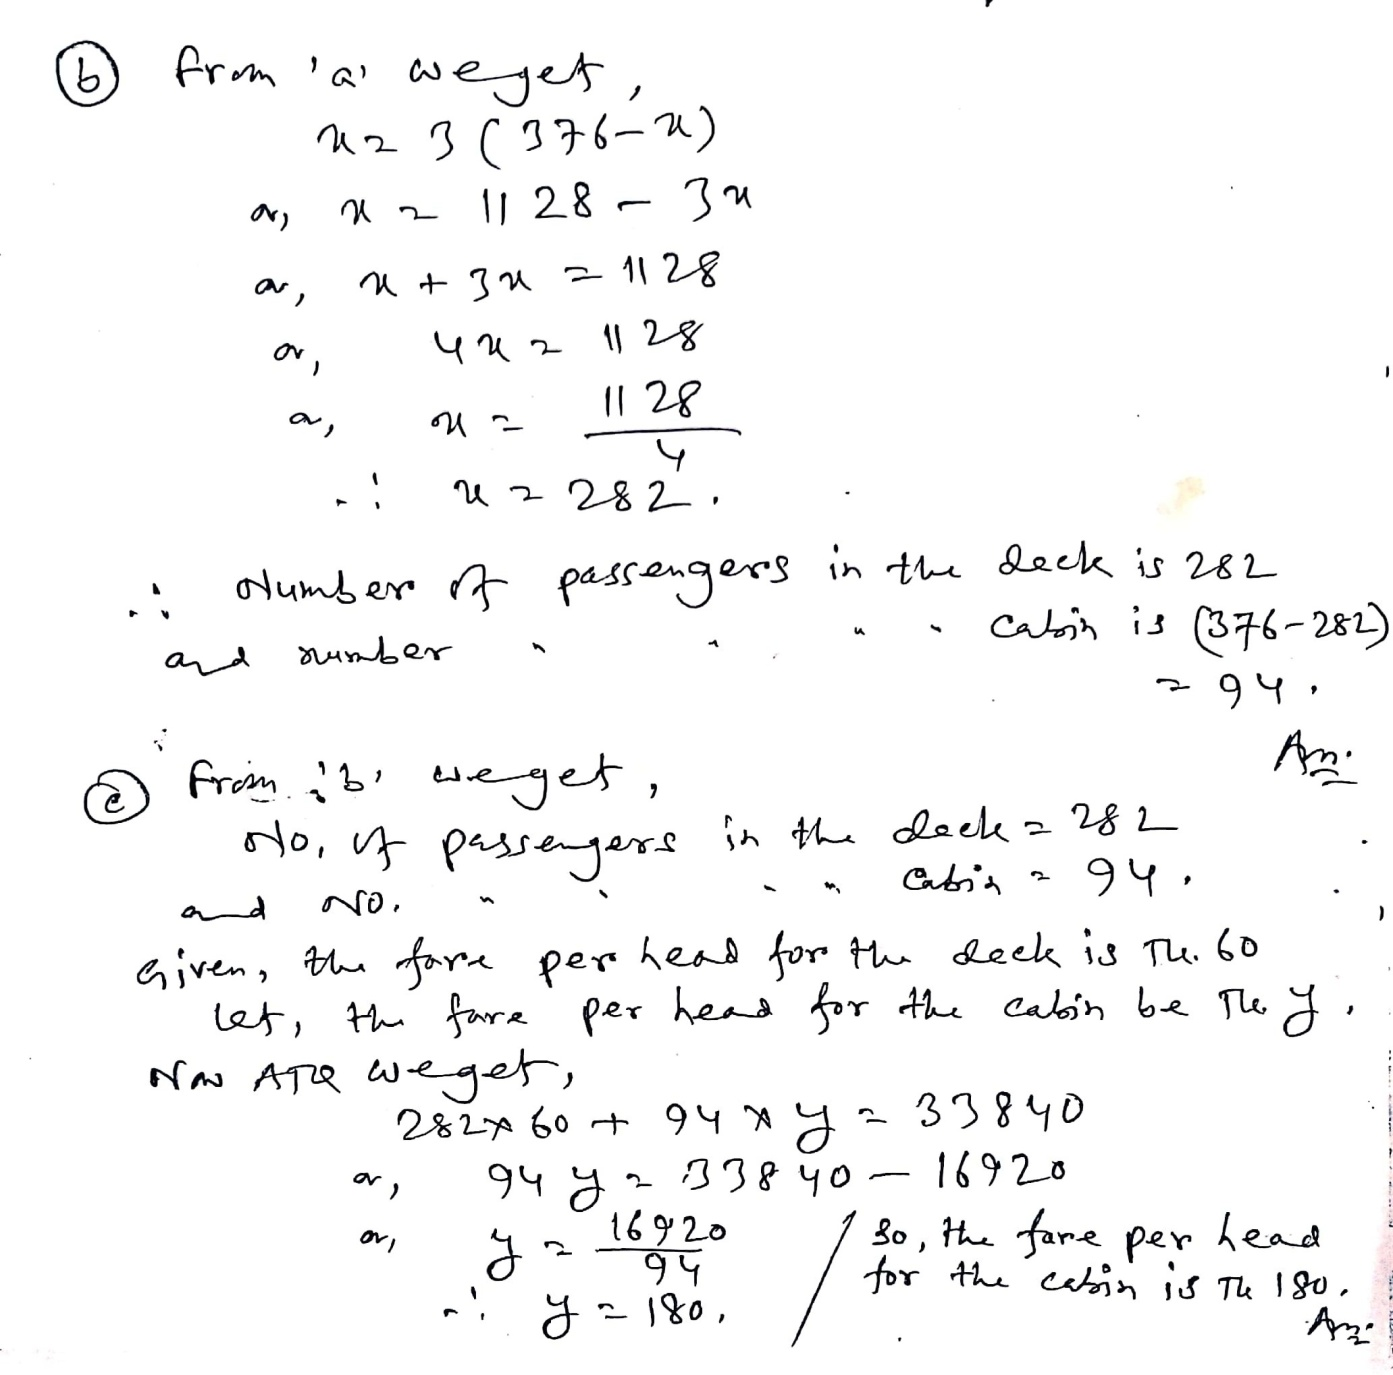 ⓑ from 'a' we get,
x = 3 (376 - x)
or, x = 1128 - 3x
or, x + 3x = 1128
or, 4x = 1128
or, x = 1128/4
∴ x = 282.
∴ Number of passengers in the deck is 282
and number " " " " cabin is (376-282)
= 94.
Ans:
ⓒ from 'b' we get,
No. of passengers in the deck = 282
and No. " " " " Cabin = 94.
Given, the fare per head for the deck is Tk. 60
Let, the fare per head for the cabin be Tk y.
Now ATQ we get,
282 × 60 + 94 × y = 33840
or, 94 y = 33840 - 16920
or, y = 16920/94
∴ y = 180.
/ So, the fare per head
for the cabin is Tk 180.
Ans: